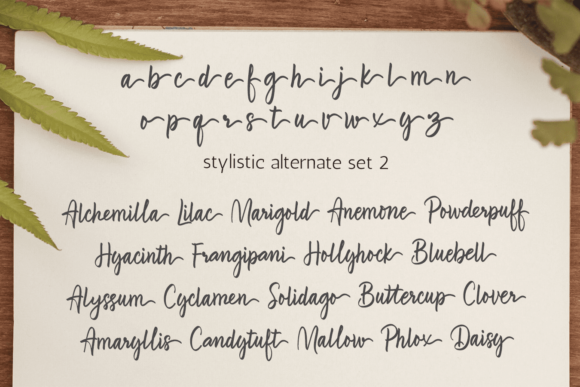 a b c d e f g h i j k l m n
o p q r s t u v w x y z
stylistic alternate set 2
Alchemilla Lilac Marigold Anemone Powderpuff
Hyacinth Frangipani Hollyhock Bluebell
Alyssum Cyclamen Solidago Buttercup Clover
Amaryllis Candytuft Mallow Phlox Daisy